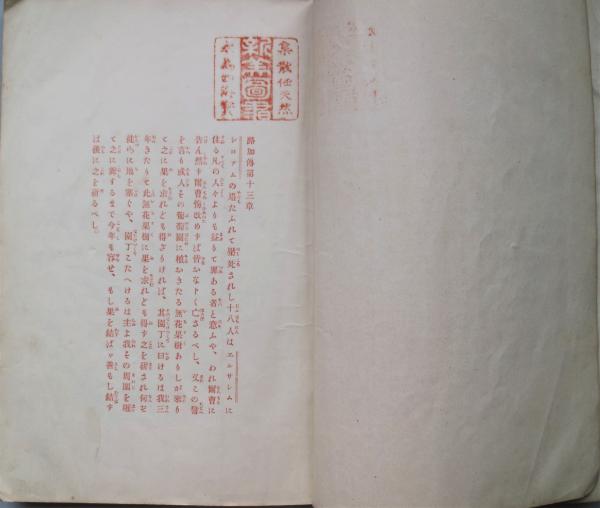 集散任天然
路加傳第十三章
シロアムの塔たふれて壓死されし十八人はエルサレムに
住る凡の人々よりも益りて罪ある者と意ふや、われ爾曹に
告ん然ず爾曹悔改めずば皆かな く亡さるべし、又この譬
を言り或人その葡萄園に植おきたる無花果樹ありしが來り
て之に果を求れども得ざりければ、其園丁に曰けるは我三
年きたりて此無花果樹に果を求れども得ず之を斫され何ぞ
徒らに地を塞ぐや、園丁こたへけるは主よ我その周圍を堀
て之に糞するまで今年も容せ、もし果を結ばゞ善もし結ず
ば後に之を斫るべし。